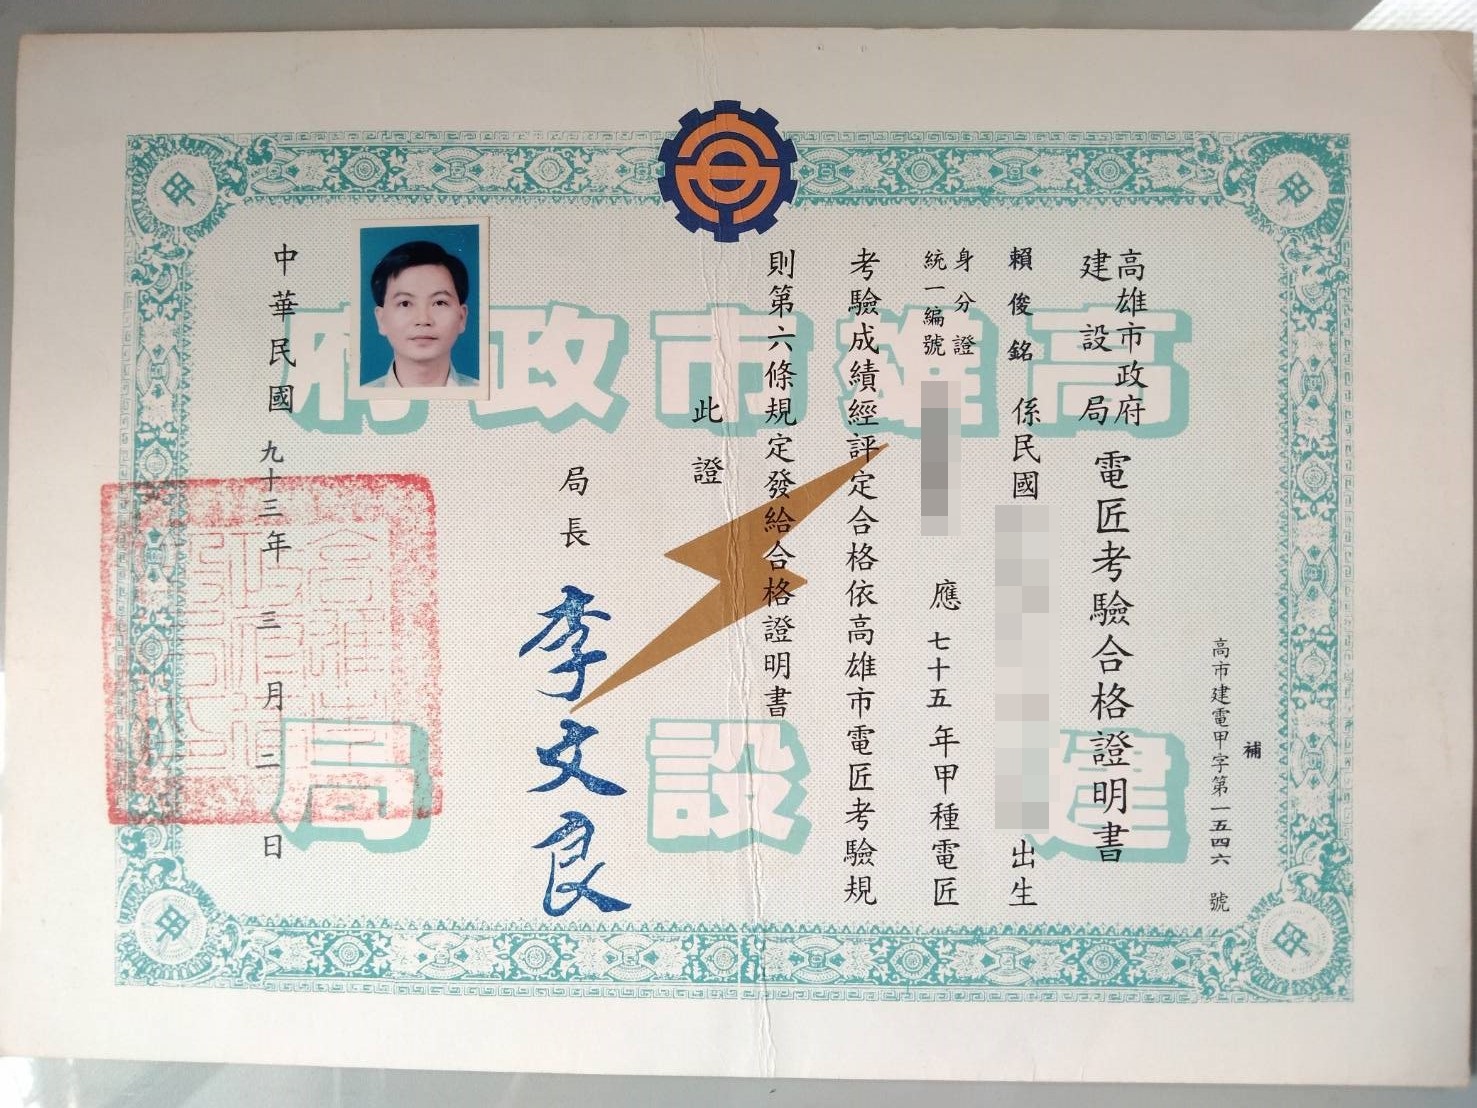 補
高市建電甲字第一五四六 號
高雄市政府
建設局
電匠考驗合格證明書
賴俊銘 係民國 出生
身分證
統一編號
應 七十五 年甲種電匠
考驗成績經評定合格依高雄市電匠考驗規
則第六條規定發給合格證明書
此證
局長 李文良
中華民國 九十三 年 三 月 二 日
高雄市政府
建設局
甲
甲
甲
甲